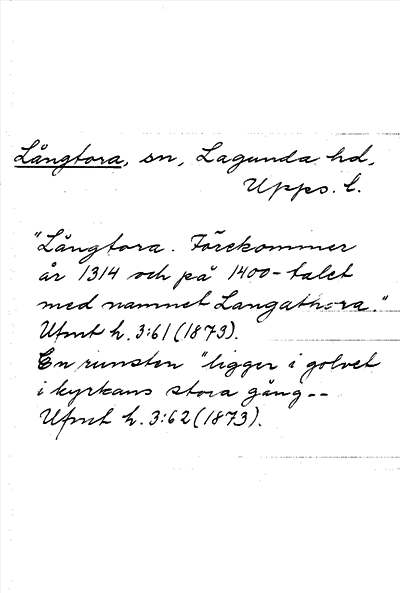 Långtora, sn, Lagunda hd,
Upps. l.
"Långtora. Förekommer
år 1314 och på 1400-talet
med namnet Langathora."
Ufmt h. 3:61 (1873).
En runsten "ligger i golvet
i kyrkans stora gång--
Ufmt h. 3:62 (1873).